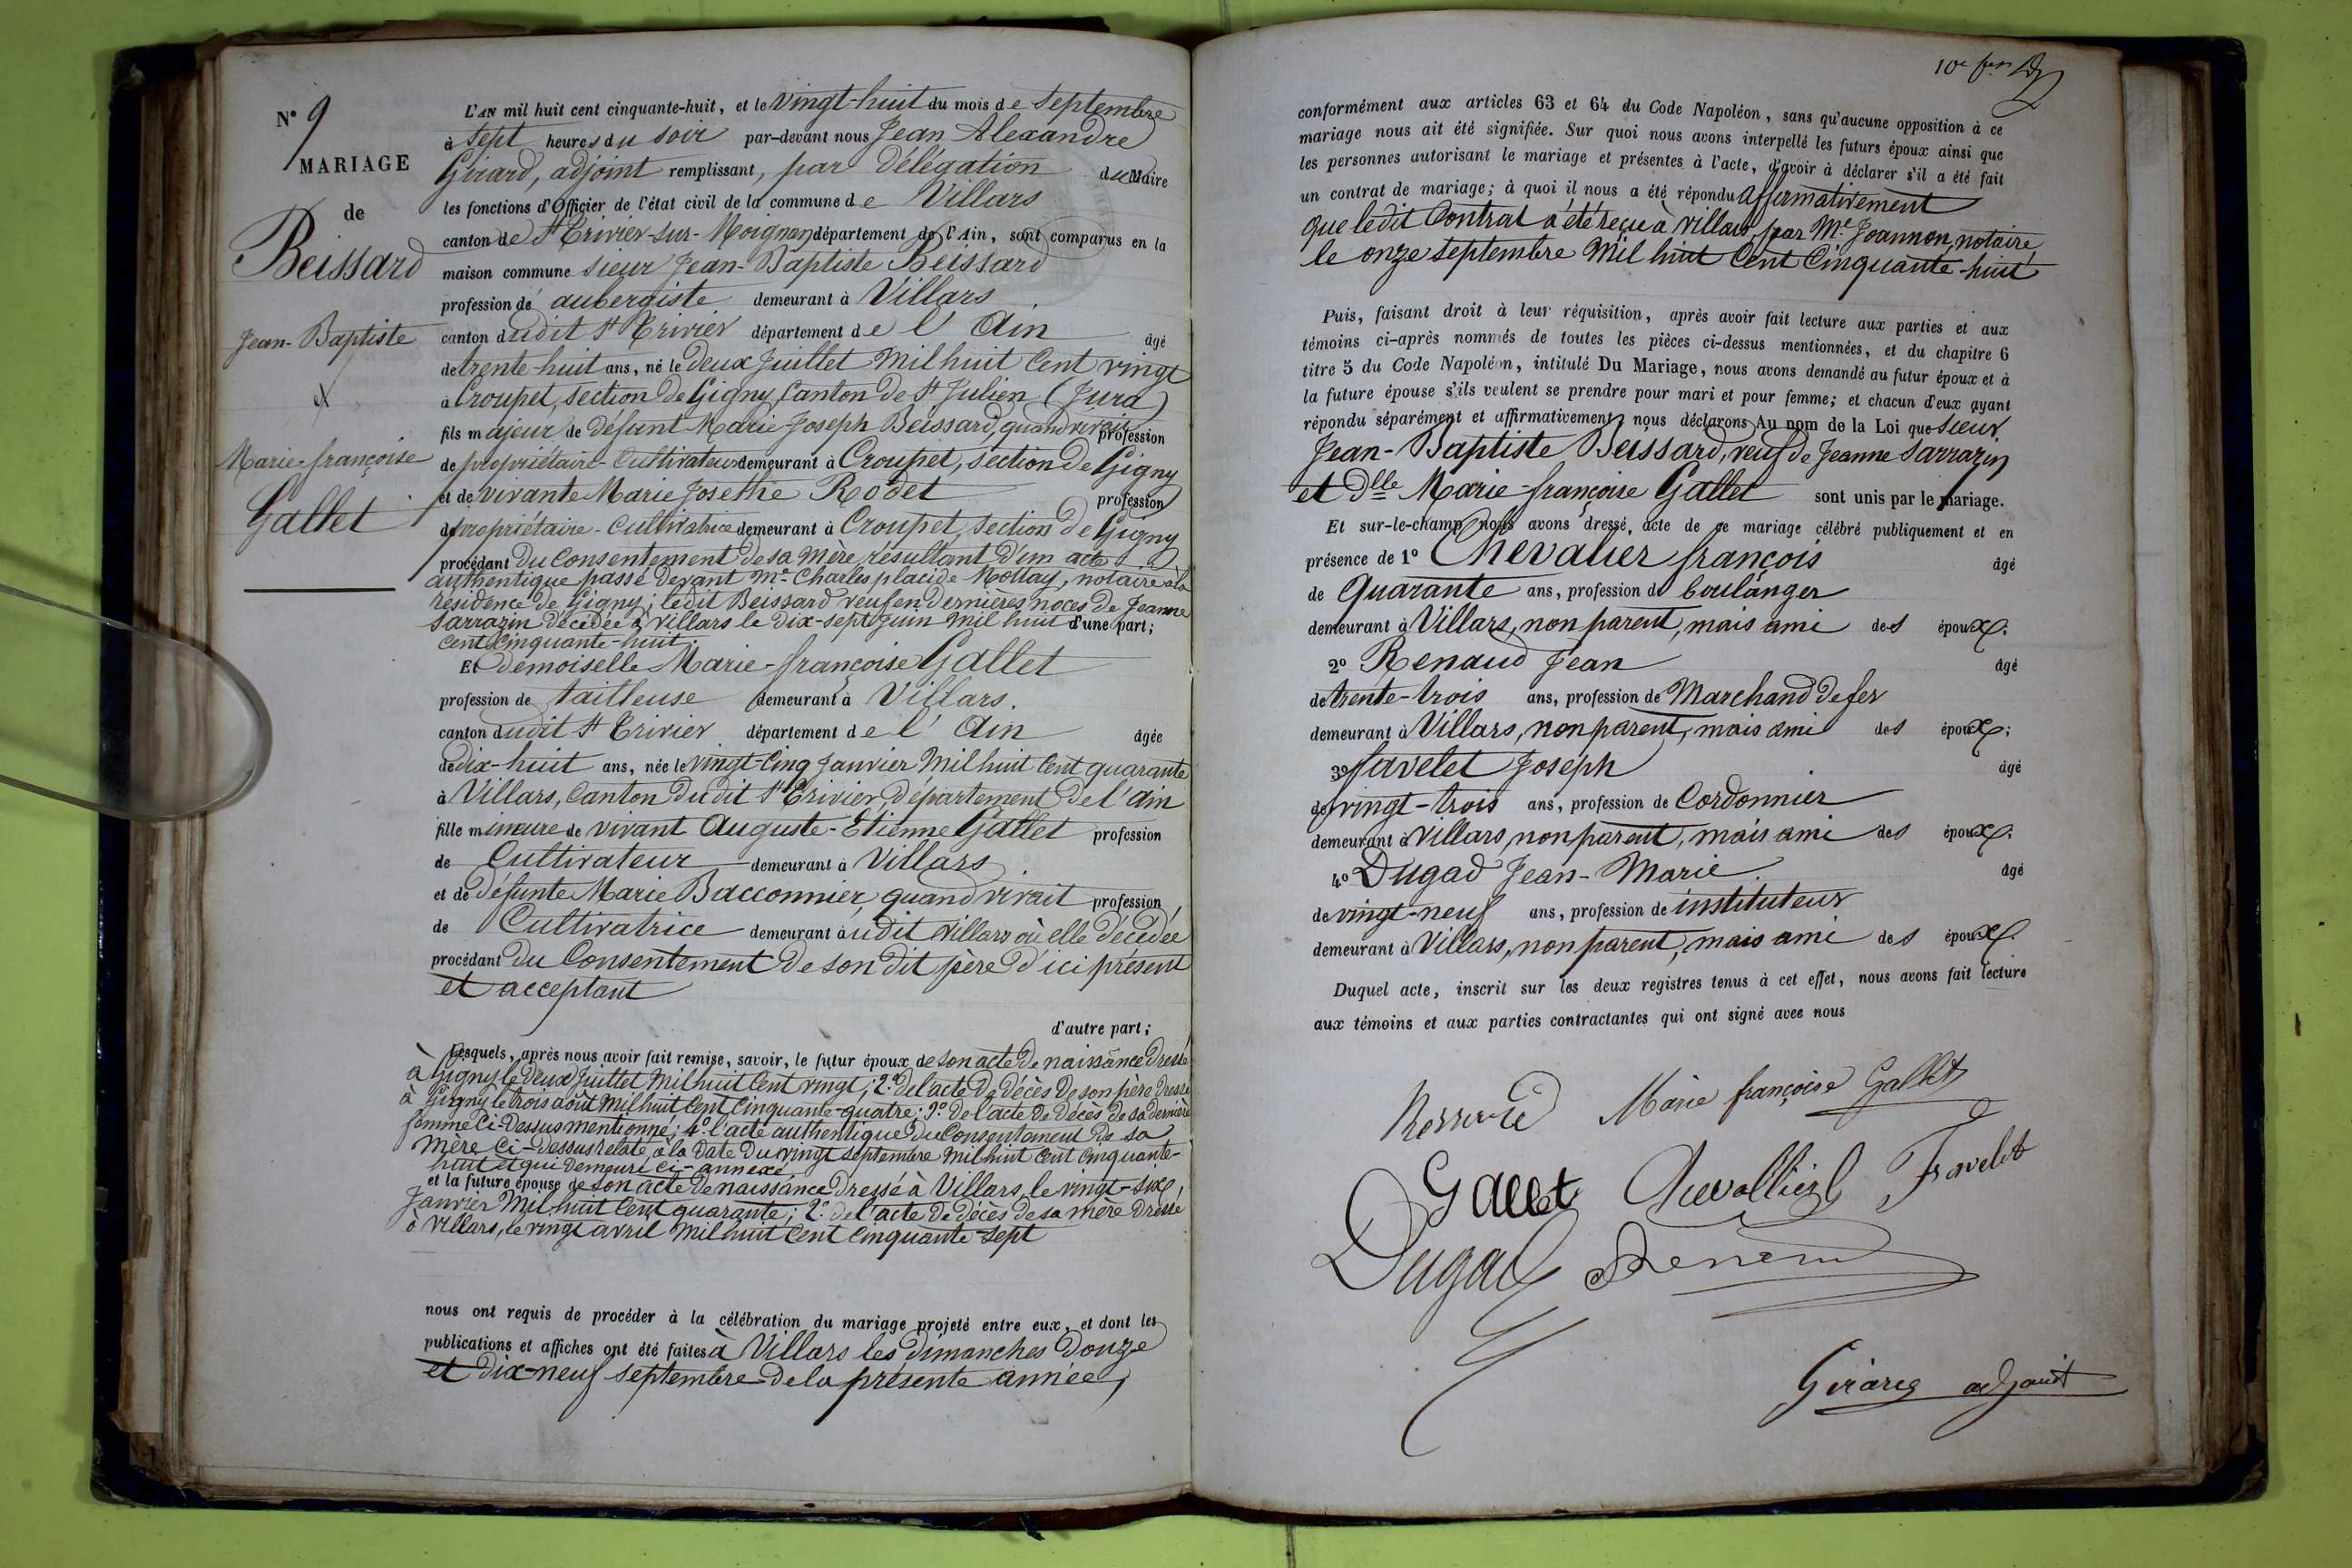 N° 9
MARIAGE
de
Beissard
Jean-Baptiste
&
Marie-françoise
Gallet
L'AN mil huit cent cinquante-huit, et le vingt-huit du mois de Septembre
à Sept heures du soir par-devant nous Jean Alexandre
Girard, adjoint remplissant, par Délégation du Maire
les fonctions d'Officier de l'état civil de la commune de Villars
canton de St Trivier-sur-Moignan département de l'Ain, sont comparus en la
maison commune sieur Jean-Baptiste Beissard
profession de aubergiste demeurant à Villars
canton dudit St Trivier département de l'Ain âgé
de trente-huit ans, né le Deux Juillet Mil huit Cent vingt
à Croupet, section de Gigny, Canton de St Julien (Jura)
fils majeur de défunt Marie-Joseph Beissard, quand vivait profession
de propriétaire-Cultivateur demeurant à Croupet, section de Gigny
et de vivante Marie Josethe Rodet profession
de propriétaire-Cultivatrice demeurant à Croupet, section de Gigny
procédant Du Consentement de sa Mère résultant d'un acte
authentique passé devant Me Charles placide Mottay, notaire à la
résidence de Gigny; ledit Beissard veuf en Dernières noces de Jeanne
Sarrazin décédée à Villars le dix-sept Juin Mil huit d'une part;
Cent Cinquante-huit.
Et demoiselle Marie-françoise Gallet
profession de tailleuse demeurant à Villars.
canton dudit St Trivier département de l'Ain âgée
de dix-huit ans, née le vingt-Cinq Janvier Mil huit Cent quarante
à Villars, Canton Dudit St Trivier, Département de l'Ain
fille mineure de vivant Auguste-Etienne Gallet profession
de Cultivateur demeurant à Villars
et de défunte Marie Bacconnier, quand vivait profession
de Cultivatrice demeurant àudit Villars où elle décédée
procédant du Consentement de son dit père D'ici présent
et acceptant
d'autre part;
Lesquels, après nous avoir fait remise, savoir, le futur époux de son acte de naissance Dressé
à Gigny le Deux Juillet Mil huit Cent vingt; 2° de l'acte de Décès de son père Dressé
à Gigny le trois août Mil huit Cent Cinquante-quatre; 3° De l'acte de Décès de sa dernière
femme Ci-Dessus mentionné; 4° l'acte authentique du Consentement de sa
Mère Ci-Dessus relaté, à la Date du vingt septembre Mil huit Cent Cinquante-
huit et qui Demeure Ci-annexé
et la future épouse de son acte de naissance Dressé à Villars, le vingt-six
Janvier Mil huit Cent quarante; 2° de l'acte de Décès de sa mère Dressé
à Villars, le vingt avril Mil huit Cent Cinquante-sept
nous ont requis de procéder à la célébration du mariage projeté entre eux, et dont les
publications et affiches ont été faites à Villars les Dimanches Douze
et Dix-neuf septembre de la présente année,
10e
conformément aux articles 63 et 64 du Code Napoléon, sans qu'aucune opposition à ce
mariage nous ait été signifiée. Sur quoi nous avons interpellé les futurs époux ainsi que
les personnes autorisant le mariage et présentes à l'acte, d'avoir à déclarer s'il a été fait
un contrat de mariage; à quoi il nous a été répondu affirmativement
que ledit Contrat a été reçu à Villars, par Me Joannon, notaire,
le onze septembre Mil huit Cent Cinquante-huit
Puis, faisant droit à leur réquisition, après avoir fait lecture aux parties et aux
témoins ci-après nommés de toutes les pièces ci-dessus mentionnées, et du chapitre 6
titre 5 du Code Napoléon, intitulé Du Mariage, nous avons demandé au futur époux et à
la future épouse s'ils veulent se prendre pour mari et pour femme; et chacun d'eux ayant
répondu séparément et affirmativement, nous déclarons Au nom de la Loi que Sieur
Jean-Baptiste Beissard, veuf de Jeanne Sarrazin
et Dlle Marie-françoise Gallet sont unis par le mariage.
Et sur-le-champ nous avons dressé, acte de ce mariage célébré publiquement et en
présence de 1° Chevalier françois âgé
de Quarante ans, profession de boulanger
demeurant à Villars, non parent, mais ami des époux;
2° Renaud Jean âgé
de trente-trois ans, profession de Marchand de fer
demeurant à Villars, non parent, mais ami des époux;
3° favelet Joseph âgé
de vingt-trois ans, profession de Cordonnier
demeurant à Villars, non parent, mais ami des époux;
4° Dugad Jean-Marie âgé
de vingt-neuf ans, profession de instituteur
demeurant à Villars, non parent, mais ami des époux.
Duquel acte, inscrit sur les deux registres tenus à cet effet, nous avons fait lecture
aux témoins et aux parties contractantes qui ont signé avec nous
Marie françoise Gallet
Gallet Chevallier Favelet
Dugad Renaud
Girard adjoint